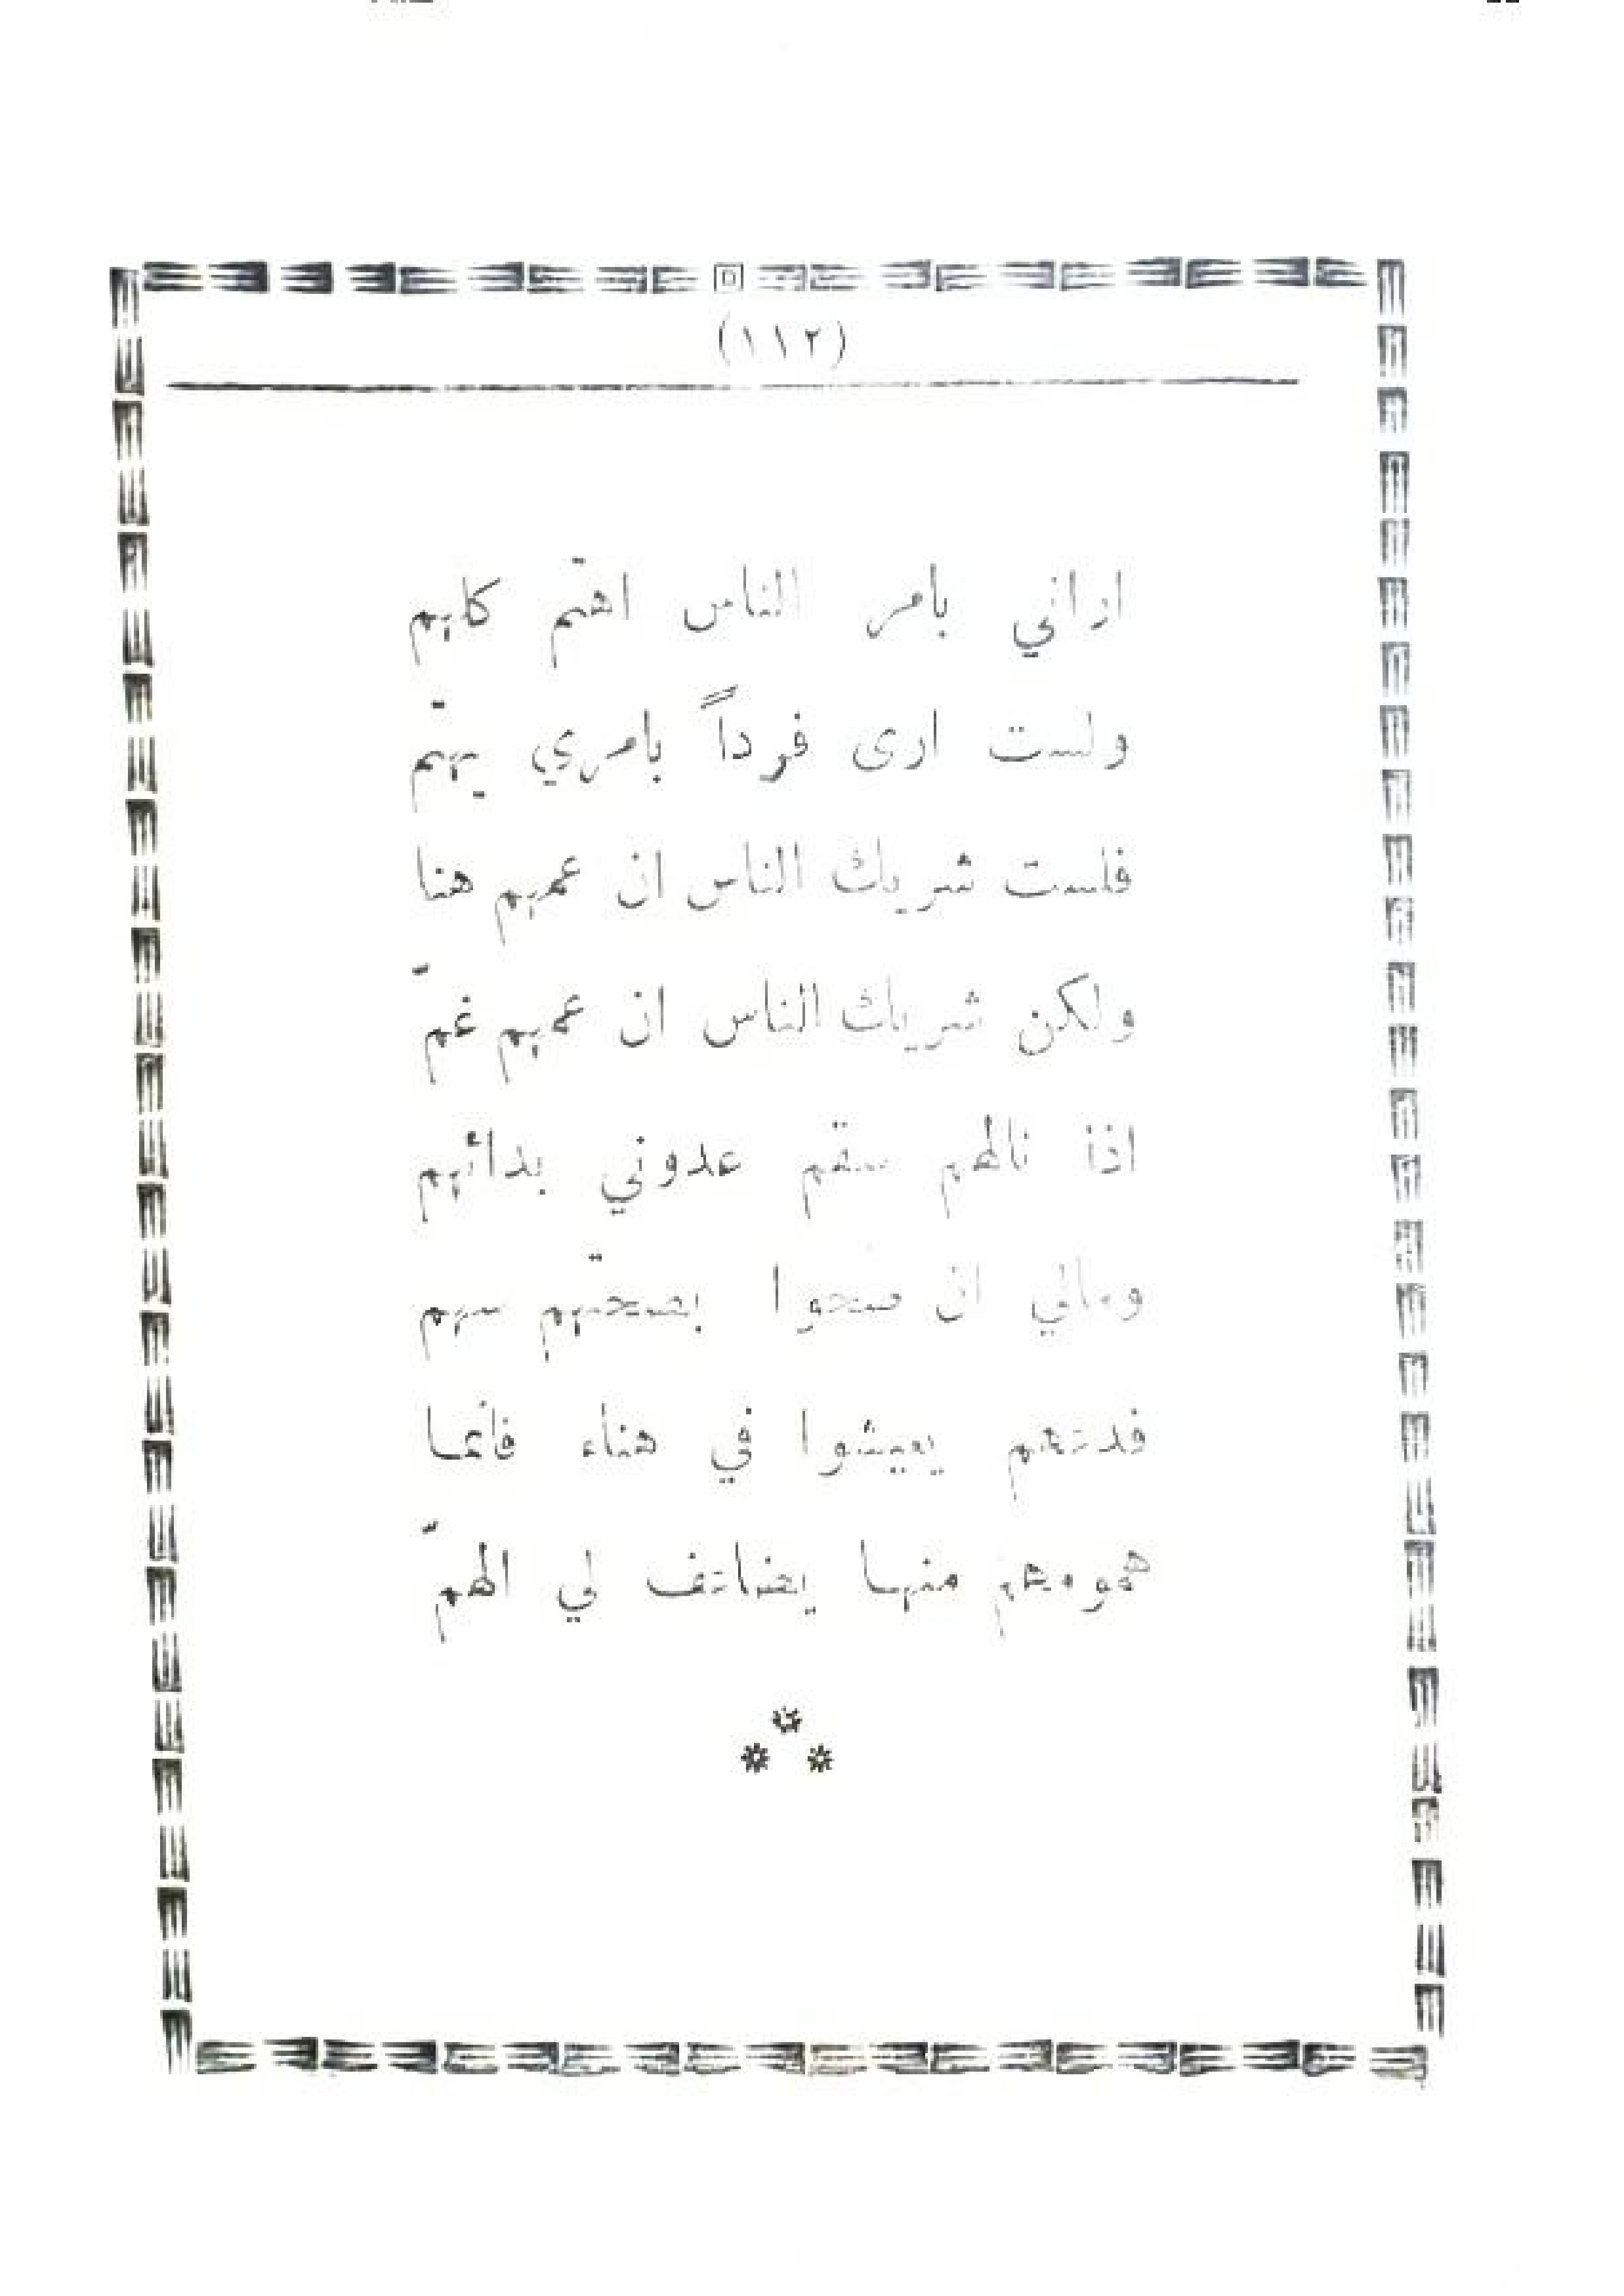 (١١٢)
اراني بامر الناس اهتم كلهم
ولست ارى فرداً بامري يهتم
فلست شريك الناس ان عمهم هنا
ولكن شريك الناس ان عمهم غمّ
اذا نالهم سقم عدوني بدائهم
ومالي ان صحوا بصحتهم سهم
فدعهم يعيشوا في هناء فانما
همومهم منها يضاعف لي الهمّ